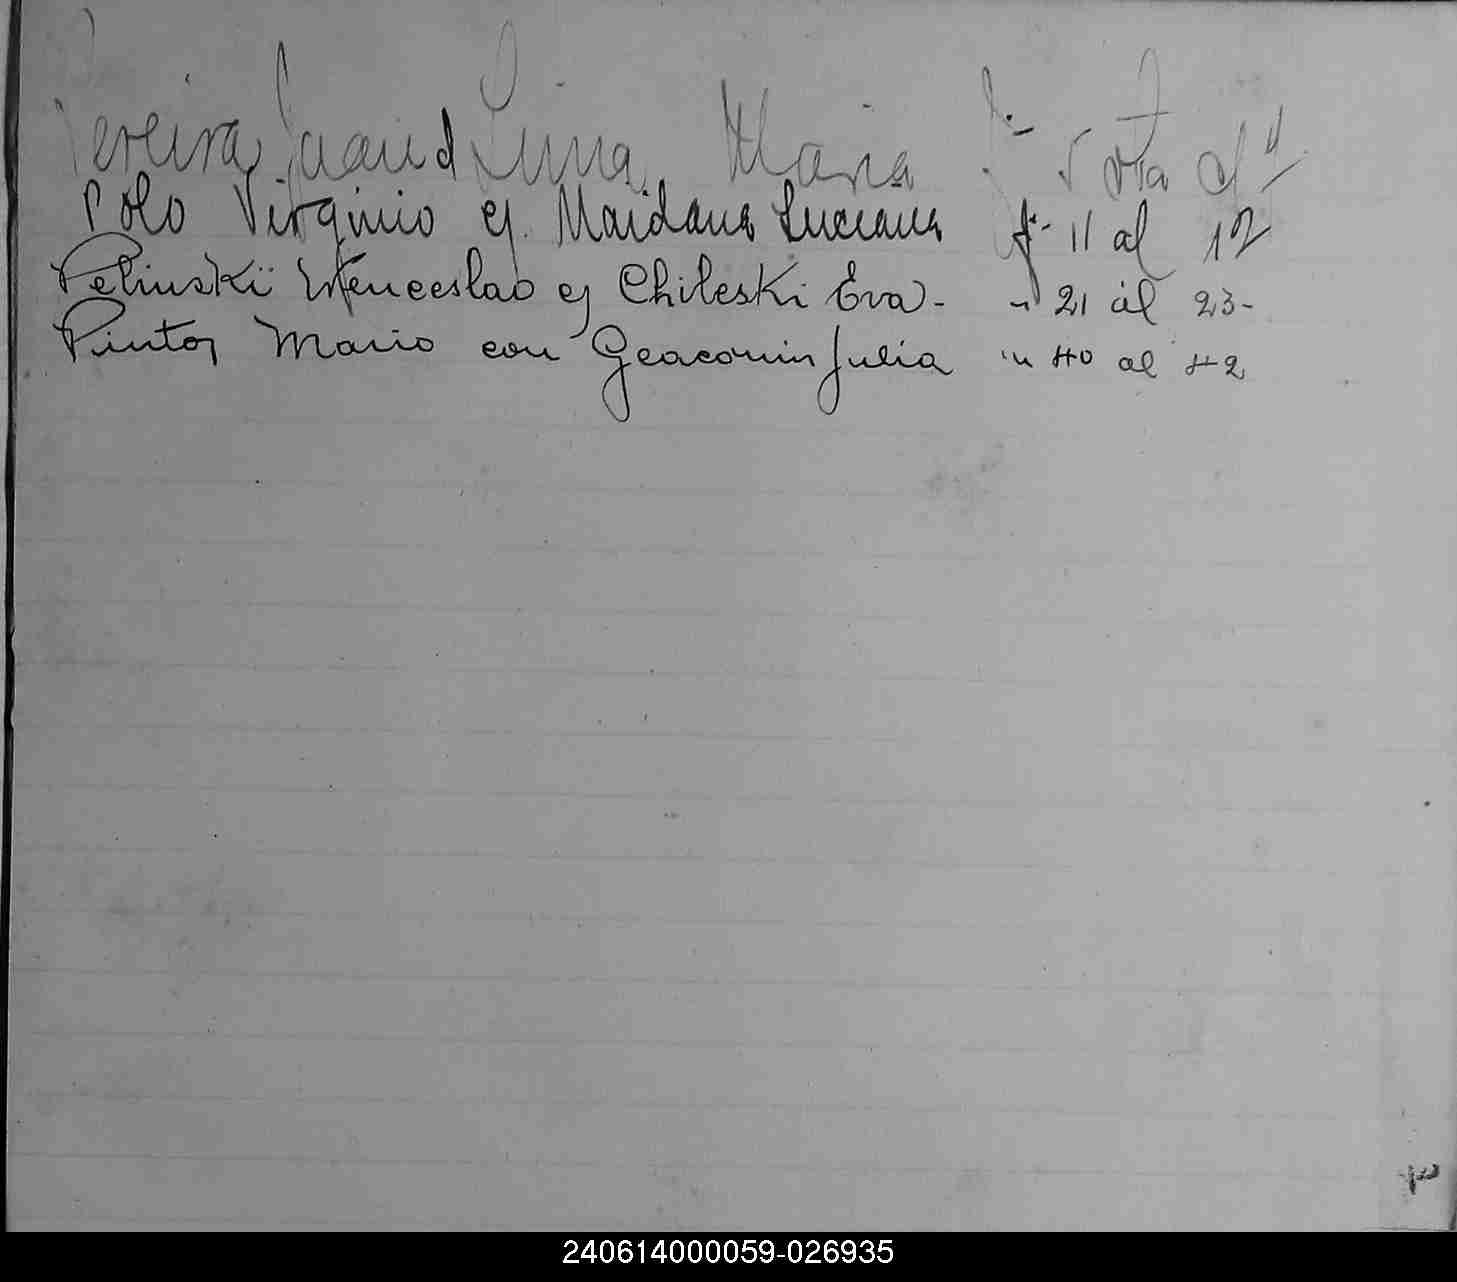 Pereira Juan d Lima Maria f.- 5 vta al 7
Polo Virginio cj. Maidana Luciana f- 11 al 12
Pelinski Wenceslao cj Chileski Eva - " 21 al 23-
Pinto Mario con Geacomin Julia " 40 al 42
240614000059-026935